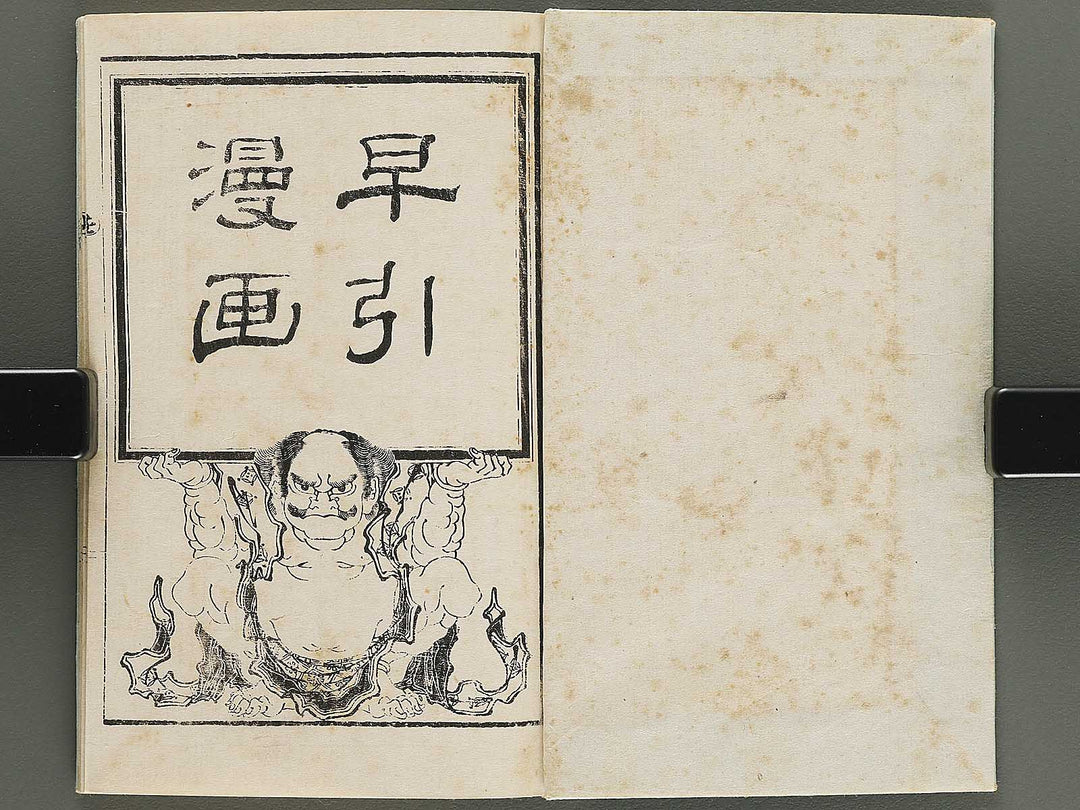 早引
漫画